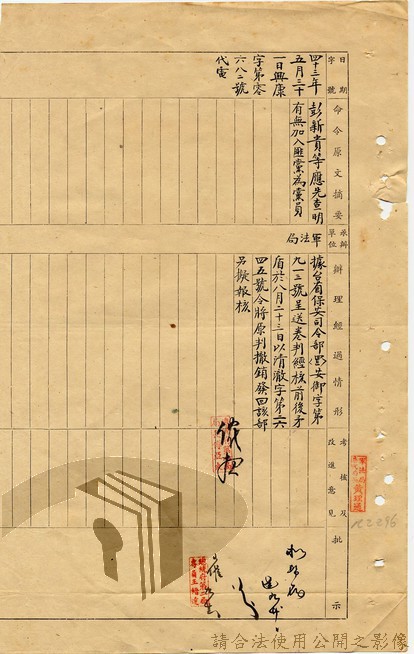 日期
字號
四十三年
五月三十
一日興康
字第零
六八二號
代電
命令原文摘要
彭新貴等應先查明
有無加入匪黨為黨員
承辦
單位
軍法局
辦理經過情形
據台省保安司令部
安御字第
九一三號呈送卷判經核前後矛
盾於八月二十三日以清澈字第二六
四五號令將原判撤銷發回該部
另擬報核
考核及
改進意見
批示
軍法局
黃理
請合法使用公開之影像